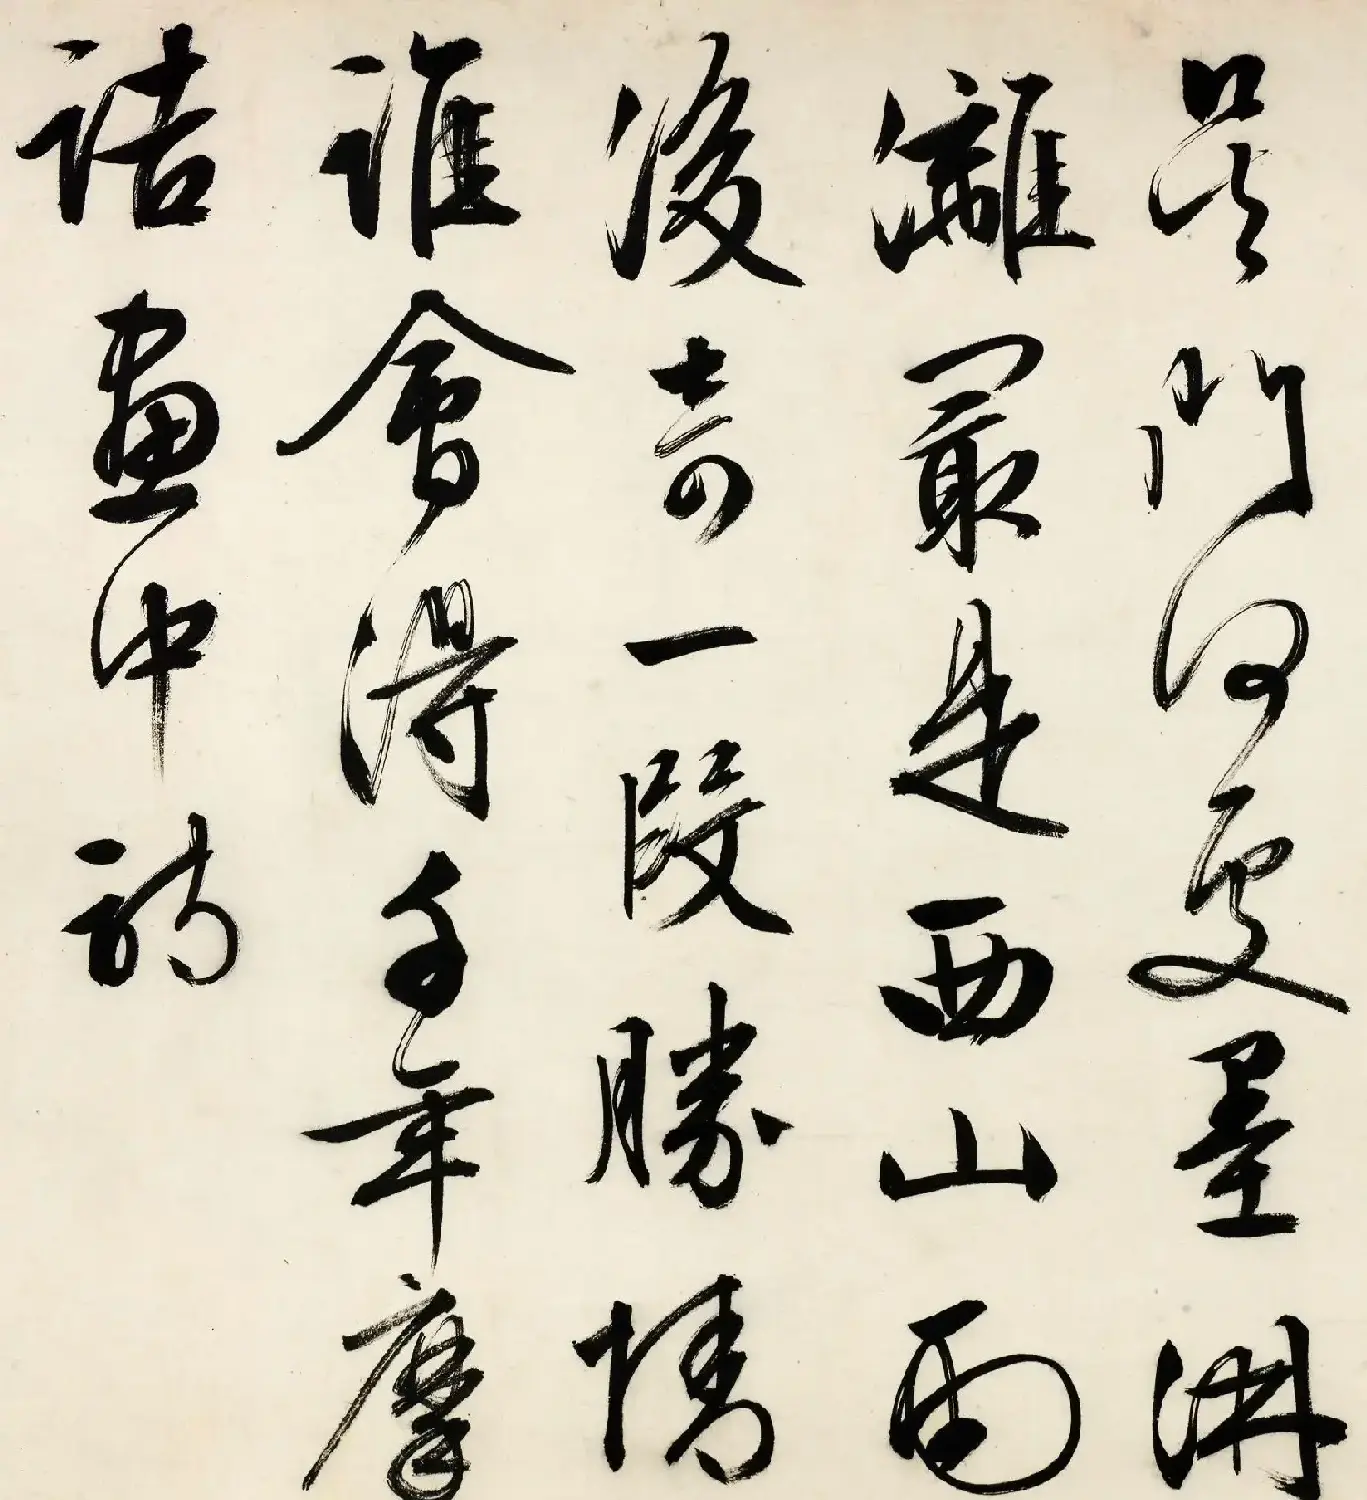 吳門何處墨淋
漓最是西山雨
後奇一段勝情
誰會得千年摩
詰畫中詩